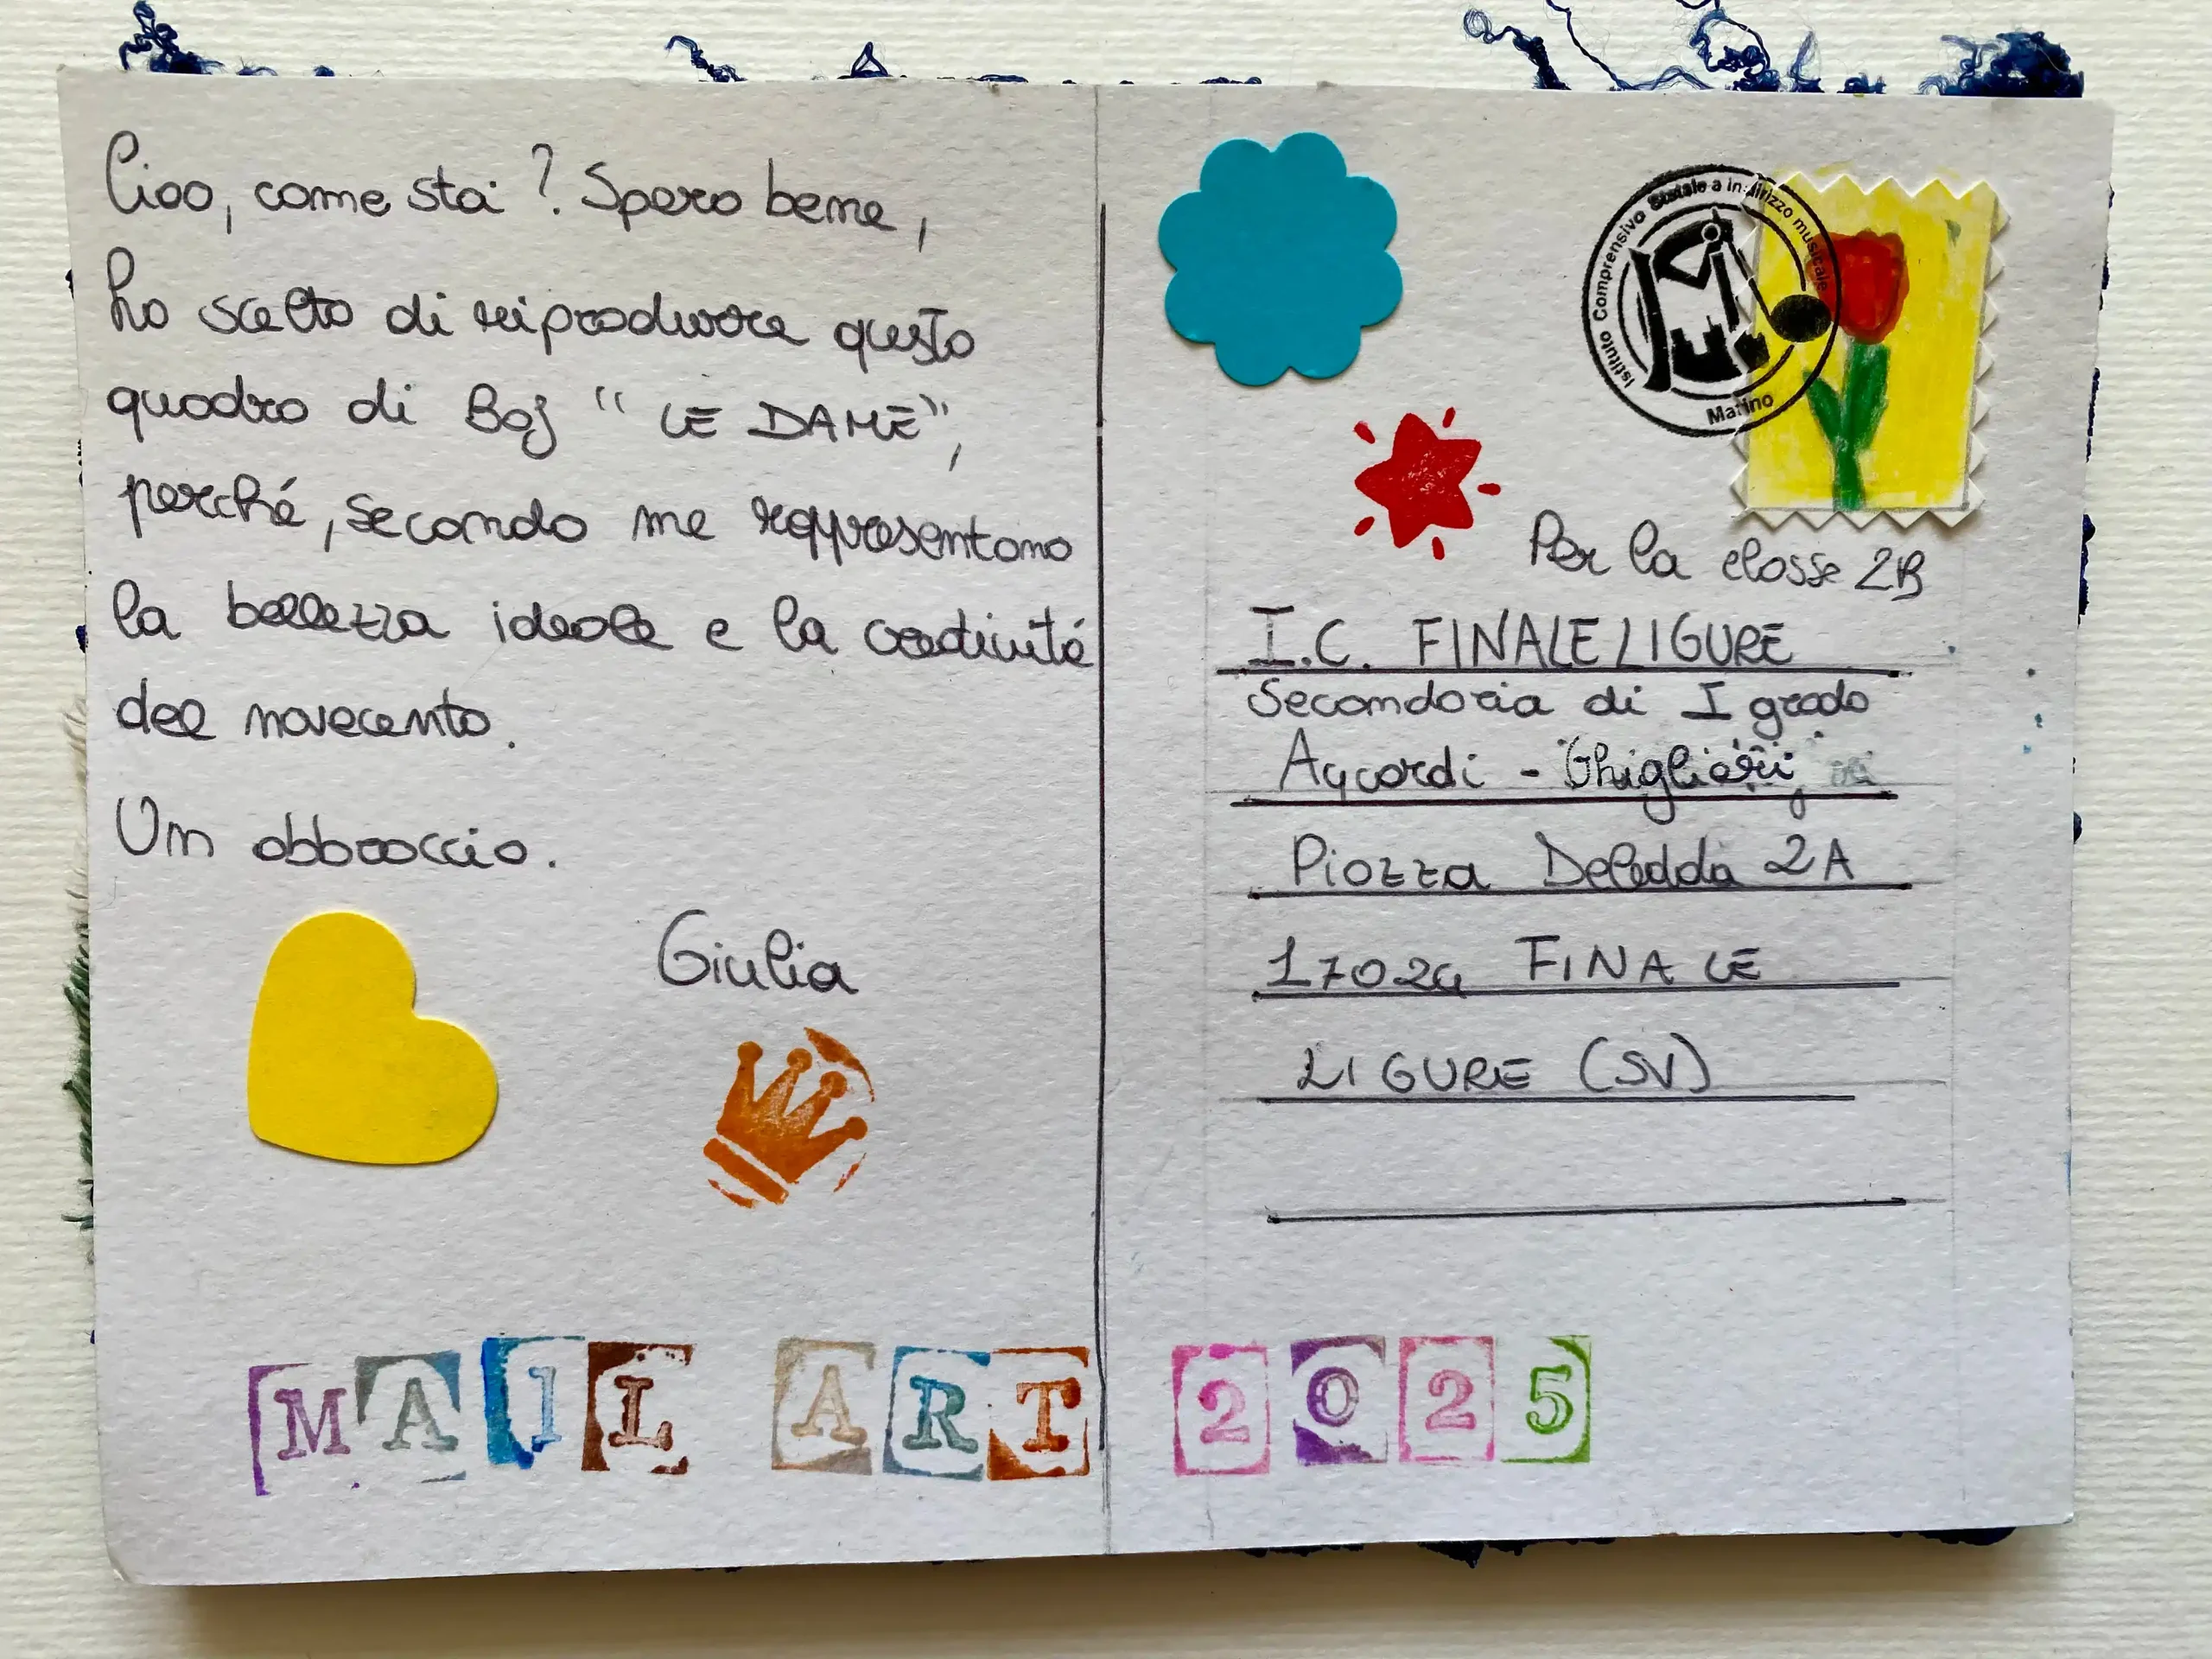 Ciao, come stai? Spero bene,
ho scelto di riprodurre questo
quadro di Boj "LE DAME",
perché, secondo me rappresentano
la bellezza ideale e la creatività
del novecento.
Un abbraccio.
Giulia
Istituto Comprensivo Statale a indirizzo musicale
Marino
Per la classe 2B
I.C. FINALE LIGURE
Secondaria di I grado
Aycardi - Ghiglieri
Piazza Deledda 2A
17024 FINALE
LIGURE (SV)
MAIL ART 2025